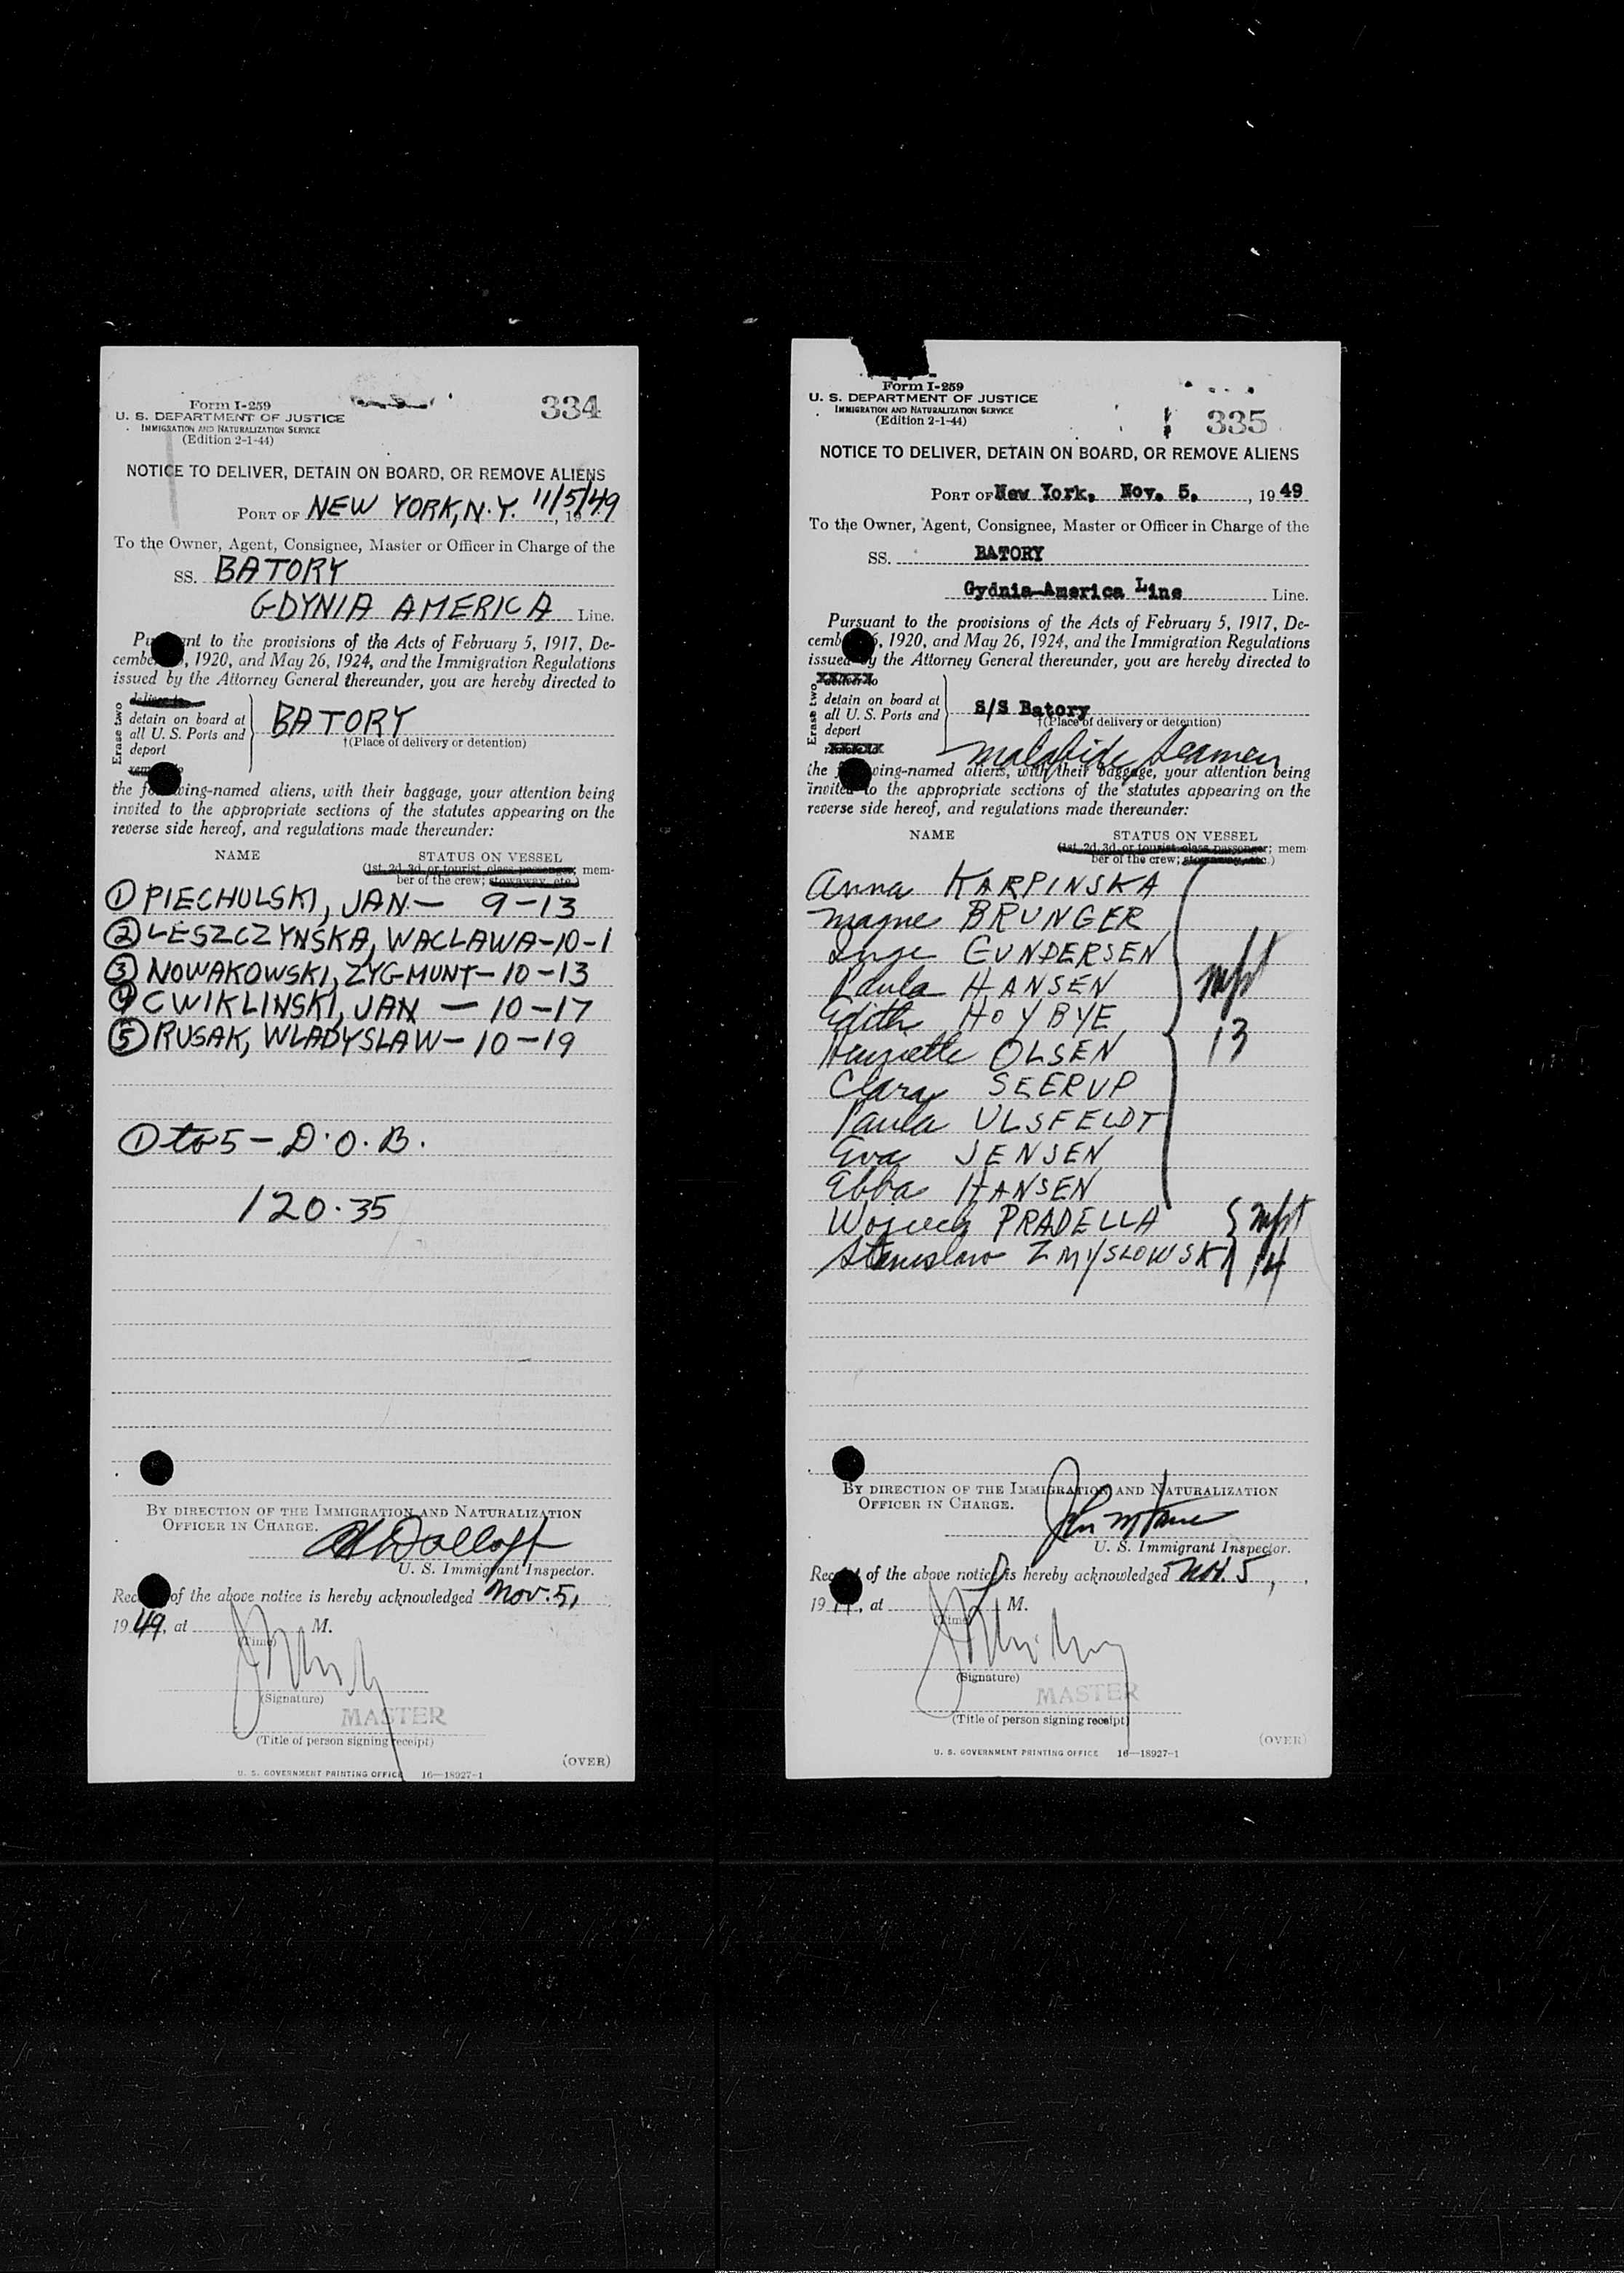 Form I-259
U. S. DEPARTMENT OF JUSTICE
IMMIGRATION AND NATURALIZATION SERVICE
(Edition 2-1-44)
334
NOTICE TO DELIVER, DETAIN ON BOARD, OR REMOVE ALIENS
PORT OF NEW YORK, N.Y. 11/5/49, 19
To the Owner, Agent, Consignee, Master or Officer in Charge of the
SS. BATORY
GDYNIA AMERICA Line.
Pu nt to the provisions of the Acts of February 5, 1917, De-
cembe , 1920, and May 26, 1924, and the Immigration Regulations
issued by the Attorney General thereunder, you are hereby directed to
Erase two
deliver to
detain on board at
all U. S. Ports and
deport
BATORY
†(Place of delivery or detention)
the f wing-named aliens, with their baggage, your attention being
invited to the appropriate sections of the statutes appearing on the
reverse side hereof, and regulations made thereunder:
NAME STATUS ON VESSEL
(1st, 2d, 3d, or tourist class passenger; mem-
ber of the crew; stowaway, etc.)
① PIECHULSKI, JAN — 9-13
② LESZCZYNSKA, WACLAWA-10-1
③ NOWAKOWSKI, ZYGMUNT-10-13
④ CWIKLINSKI, JAN — 10-17
⑤ RUSAK, WLADYSLAW-10-19
① to 5 — D.O.B.
120.35
BY DIRECTION OF THE IMMIGRATION AND NATURALIZATION
OFFICER IN CHARGE.
U. S. Immigrant Inspector.
Rec of the above notice is hereby acknowledged Nov. 5,
1949, at M.
(Time)
(Signature)
MASTER
(Title of person signing receipt)
(OVER)
U. S. GOVERNMENT PRINTING OFFICE 16—18927-1
Form I-259
U. S. DEPARTMENT OF JUSTICE
IMMIGRATION AND NATURALIZATION SERVICE
(Edition 2-1-44)
335
NOTICE TO DELIVER, DETAIN ON BOARD, OR REMOVE ALIENS
PORT OF New York, Nov. 5, , 19 49
To the Owner, Agent, Consignee, Master or Officer in Charge of the
SS. BATORY
Gydnia-America Line Line.
Pursuant to the provisions of the Acts of February 5, 1917, De-
cemb , 1920, and May 26, 1924, and the Immigration Regulations
issued by the Attorney General thereunder, you are hereby directed to
Erase two
deliver to
detain on board at
all U. S. Ports and
deport
S/S Batory
†(Place of delivery or detention)
malafide seamen
the wing-named aliens, with their baggage, your attention being
invited to the appropriate sections of the statutes appearing on the
reverse side hereof, and regulations made thereunder:
NAME STATUS ON VESSEL
(1st, 2d, 3d, or tourist class passenger; mem-
ber of the crew; stowaway, etc.)
Anna KARPINSKA
Magne BRUNGER
Inge GUNDERSEN
Paula HANSEN
Edith HOYBYE
Henriette OLSEN
13
Clara SEERUP
Paula ULSFELDT
Eva JENSEN
Ebba HANSEN
Wojciech PRADELLA
Stanislaw ZMYSLOWSKI 14
BY DIRECTION OF THE IMMIGRATION AND NATURALIZATION
OFFICER IN CHARGE.
U. S. Immigrant Inspector.
Rec of the above notice is hereby acknowledged Nov. 5,
19 , at M.
(Time)
(Signature)
MASTER
(Title of person signing receipt)
(OVER)
U. S. GOVERNMENT PRINTING OFFICE 16—18927-1